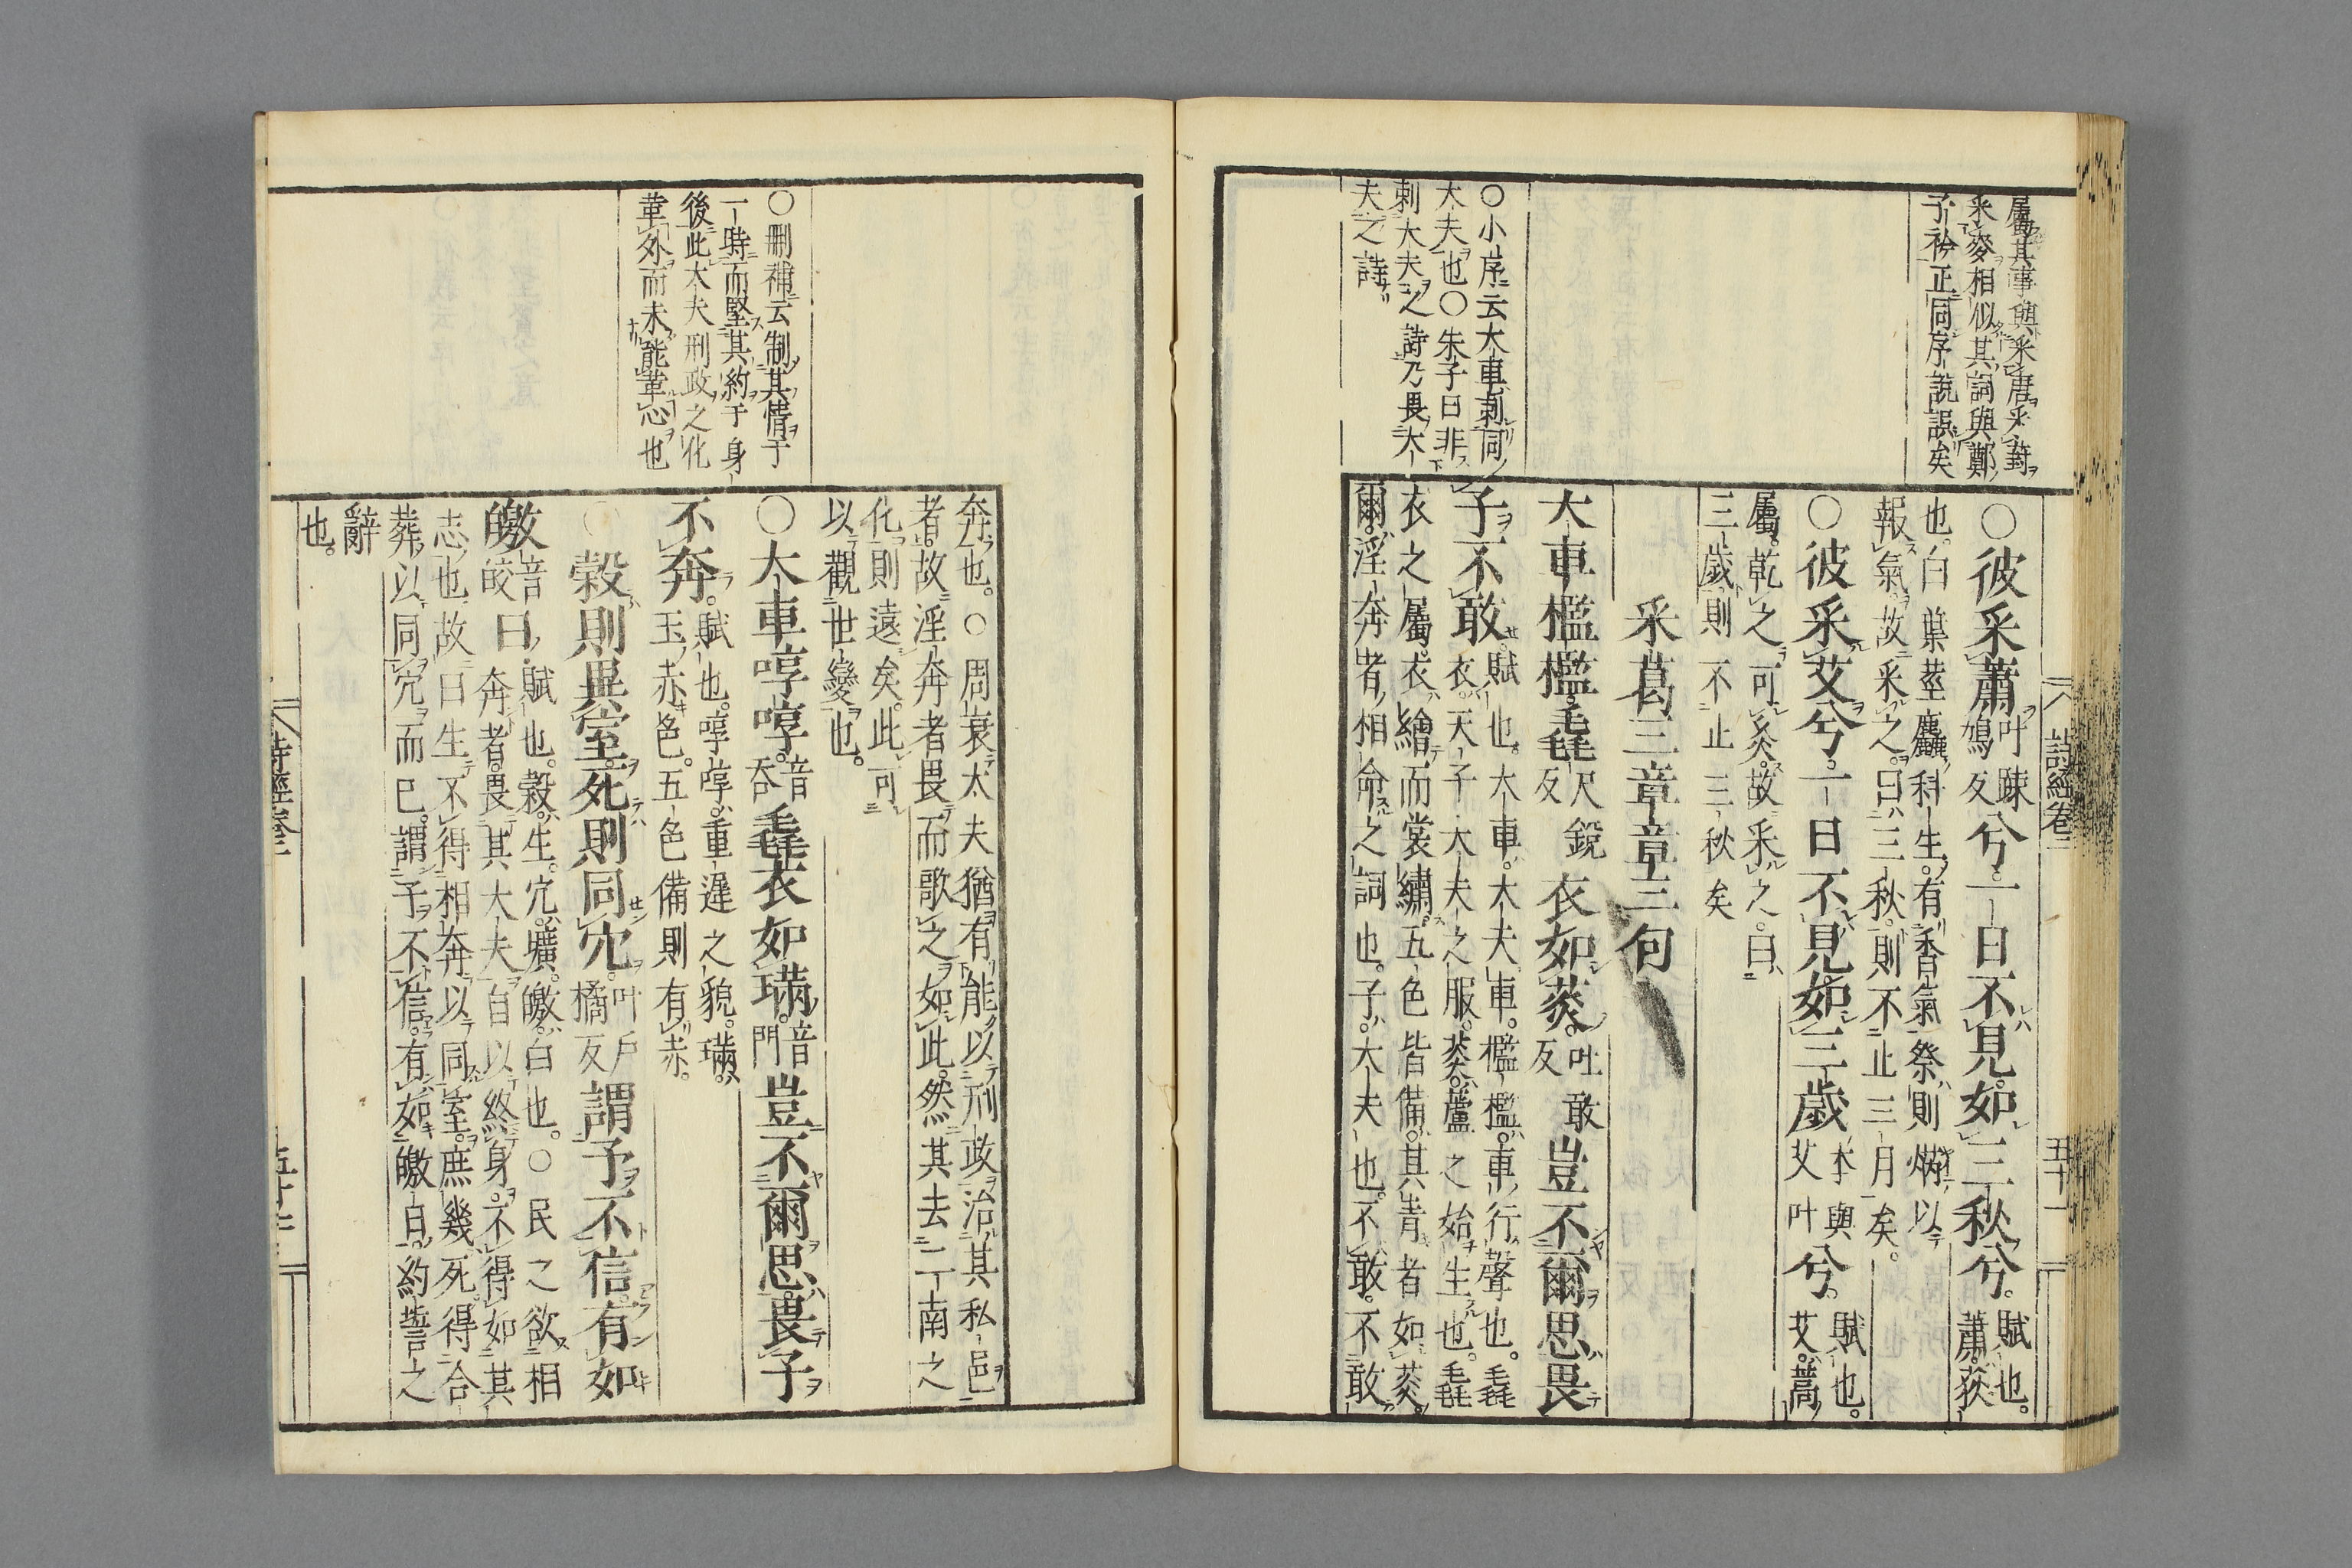 屬其事與采唐采葑
采麥相似其詞與鄭
子衿正同序說誤矣
○小序云大車刺周
大夫也○朱子曰非
刺大夫之詩乃畏大
夫之詩
詩經卷三
五十一
○彼采蕭叶踈鳩反兮一日不見如三秋兮賦也。蕭。荻
也。白葉莖麤科生。有香氣。祭則焫以
報氣。故采之。曰三秋。則不止三月矣。
○彼采艾兮。一日不見如三歲本與艾叶兮。賦也。艾。蒿
屬。乾之可灸。故采之。曰
三歲則不止三秋矣
采葛三章章三句
大車檻檻毳尺銳反衣如菼。吐敢反豈不爾思畏
子不敢賦也。大車。大夫車。檻檻。車行聲也。毳
衣。天子大夫之服。菼。蘆之始生也。毳
衣之屬。衣繪而裳繡。五色皆備。其青者如菼
爾。淫奔者相命之詞也。子。大夫也。不敢。不敢
奔也。○周衰大夫猶有能以刑政治其私邑
者。故淫奔者畏而歌之如此。然其去二南之
化則遠矣。此可
以觀世變也。
○大車啍啍音吞毳衣如璊。音門豈不爾思畏子
不奔。賦也。啍啍。重遲之貌。璊。
玉赤色。五色備則有赤。
○穀則異室死則同穴。叶戶橘反謂予不信。有如
皦音皎日。賦也。穀。生。穴。壙。皦。白也。○民之欲相
奔者。畏其大夫自以終身。不得如其
志也。故曰生不得相奔以同室。庶幾死得合
葬以同穴而已。謂予不信。有如皦日。約誓之
辭
也。
○刪補云制其情于
一時而堅其約于身
後此大夫刑政之化
革外而未能革心也
詩經卷三
五十二